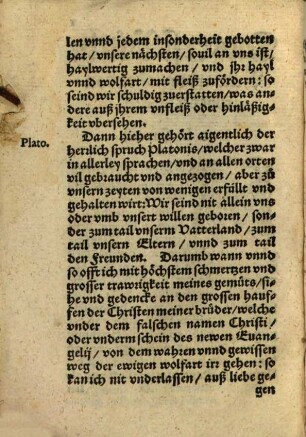 len vnnd jedem insonderheit gebotten
hat / vnsere nächsten / souil an vns ist /
haylwertig zumachen / vnd jhr hayl
vnnd wolfart / mit fleiß zufördern: so
seind wir schuldig zuerstatten / was an-
dere auß jhrem vnfleiß oder hinläßig-
keit vbersehen.
Plato.
Dann hieher gehört aigentlich der
herrlich spruch Platonis / welcher zwar
in allerley sprachen / vnd an allen orten
vil gebraucht vnd angezogen / aber zů
vnsern zeyten von wenigen erfüllt vnd
gehalten wirt: Wir seind nit allein vns
oder vmb vnsert willen geboren / son-
der zum tail vnserm Vatterland / zum
tail vnsern Eltern / vnnd zum tail
den Freunden. Darumb wann vnnd
so offt ich mit höchstem schmertzen vnd
grosser trawrigkeit meines gemüts / si-
he vnd gedencke an den grossen hauf-
fen der Christen meiner brüder / welche
vnder dem falschen namen Christi /
oder vnderm schein des newen Euan-
gelij / von dem wahren vnnd gewissen
weg der ewigen wolfart irr gehen: so
kan ich nit vnderlassen / auß liebe ge-
gen